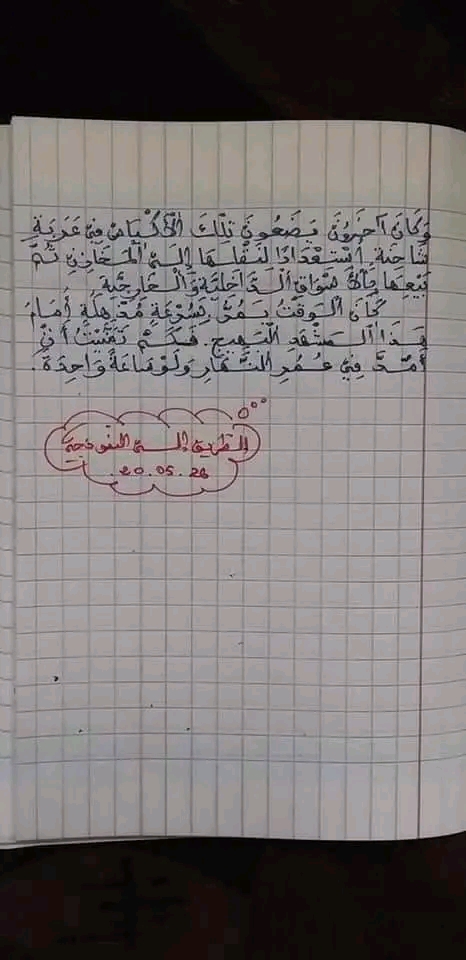 وَكَانَ آخَرُونَ يَضَعُونَ تِلْكَ الْأَكْيَاسَ فِي عَرَبَةٍ
شَاحِنَةٍ اُسْتِعْدَادًا لِنَقْلِهَا إِلَى الْمَخَازِنِ ثُمَّ
بَيْعِهَا بِالْأَسْوَاقِ الدَّاخِلِيَّةِ وَالْخَارِجِيَّةِ
كَانَ الْوَقْتُ يَمُرُّ بِسُرْعَةٍ مُذْهِلَةٍ أَمَامَ
هَذَا الْمَشْهَدِ الْبَهِيجِ. فَكَمْ تَمَنَّيْتُ أَنْ
أَمُدَّ فِي عُمُرِ النَّهَارِ وَلَوْ سَاعَةً وَاحِدَةً.
الطريق إلى النموذجي
20.05.26